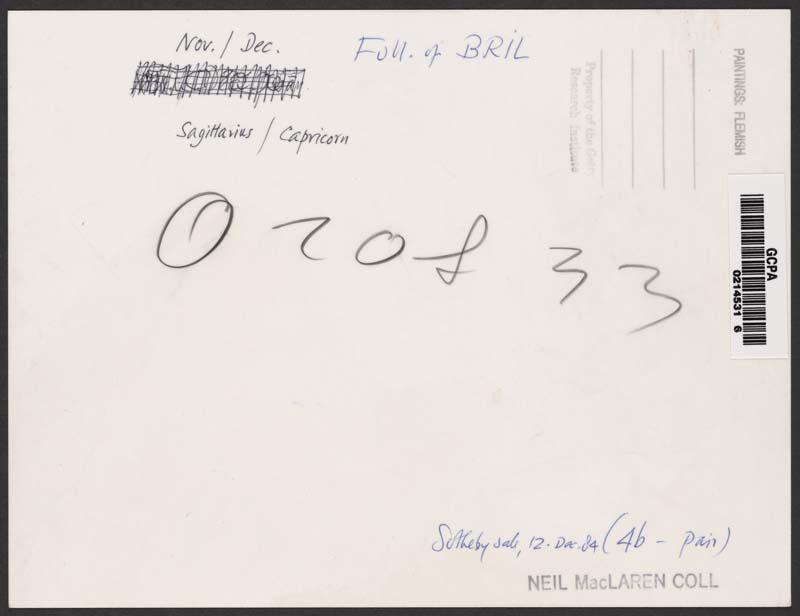 Nov. / Dec.
Foll. of BRIL
Sagittarius / Capricorn
Property of the Getty
Research Institute
PAINTINGS: FLEMISH
GCPA
0214531 6
33
Sotheby sale, 12. Dec. 84 (4b - pair)
NEIL MacLAREN COLL